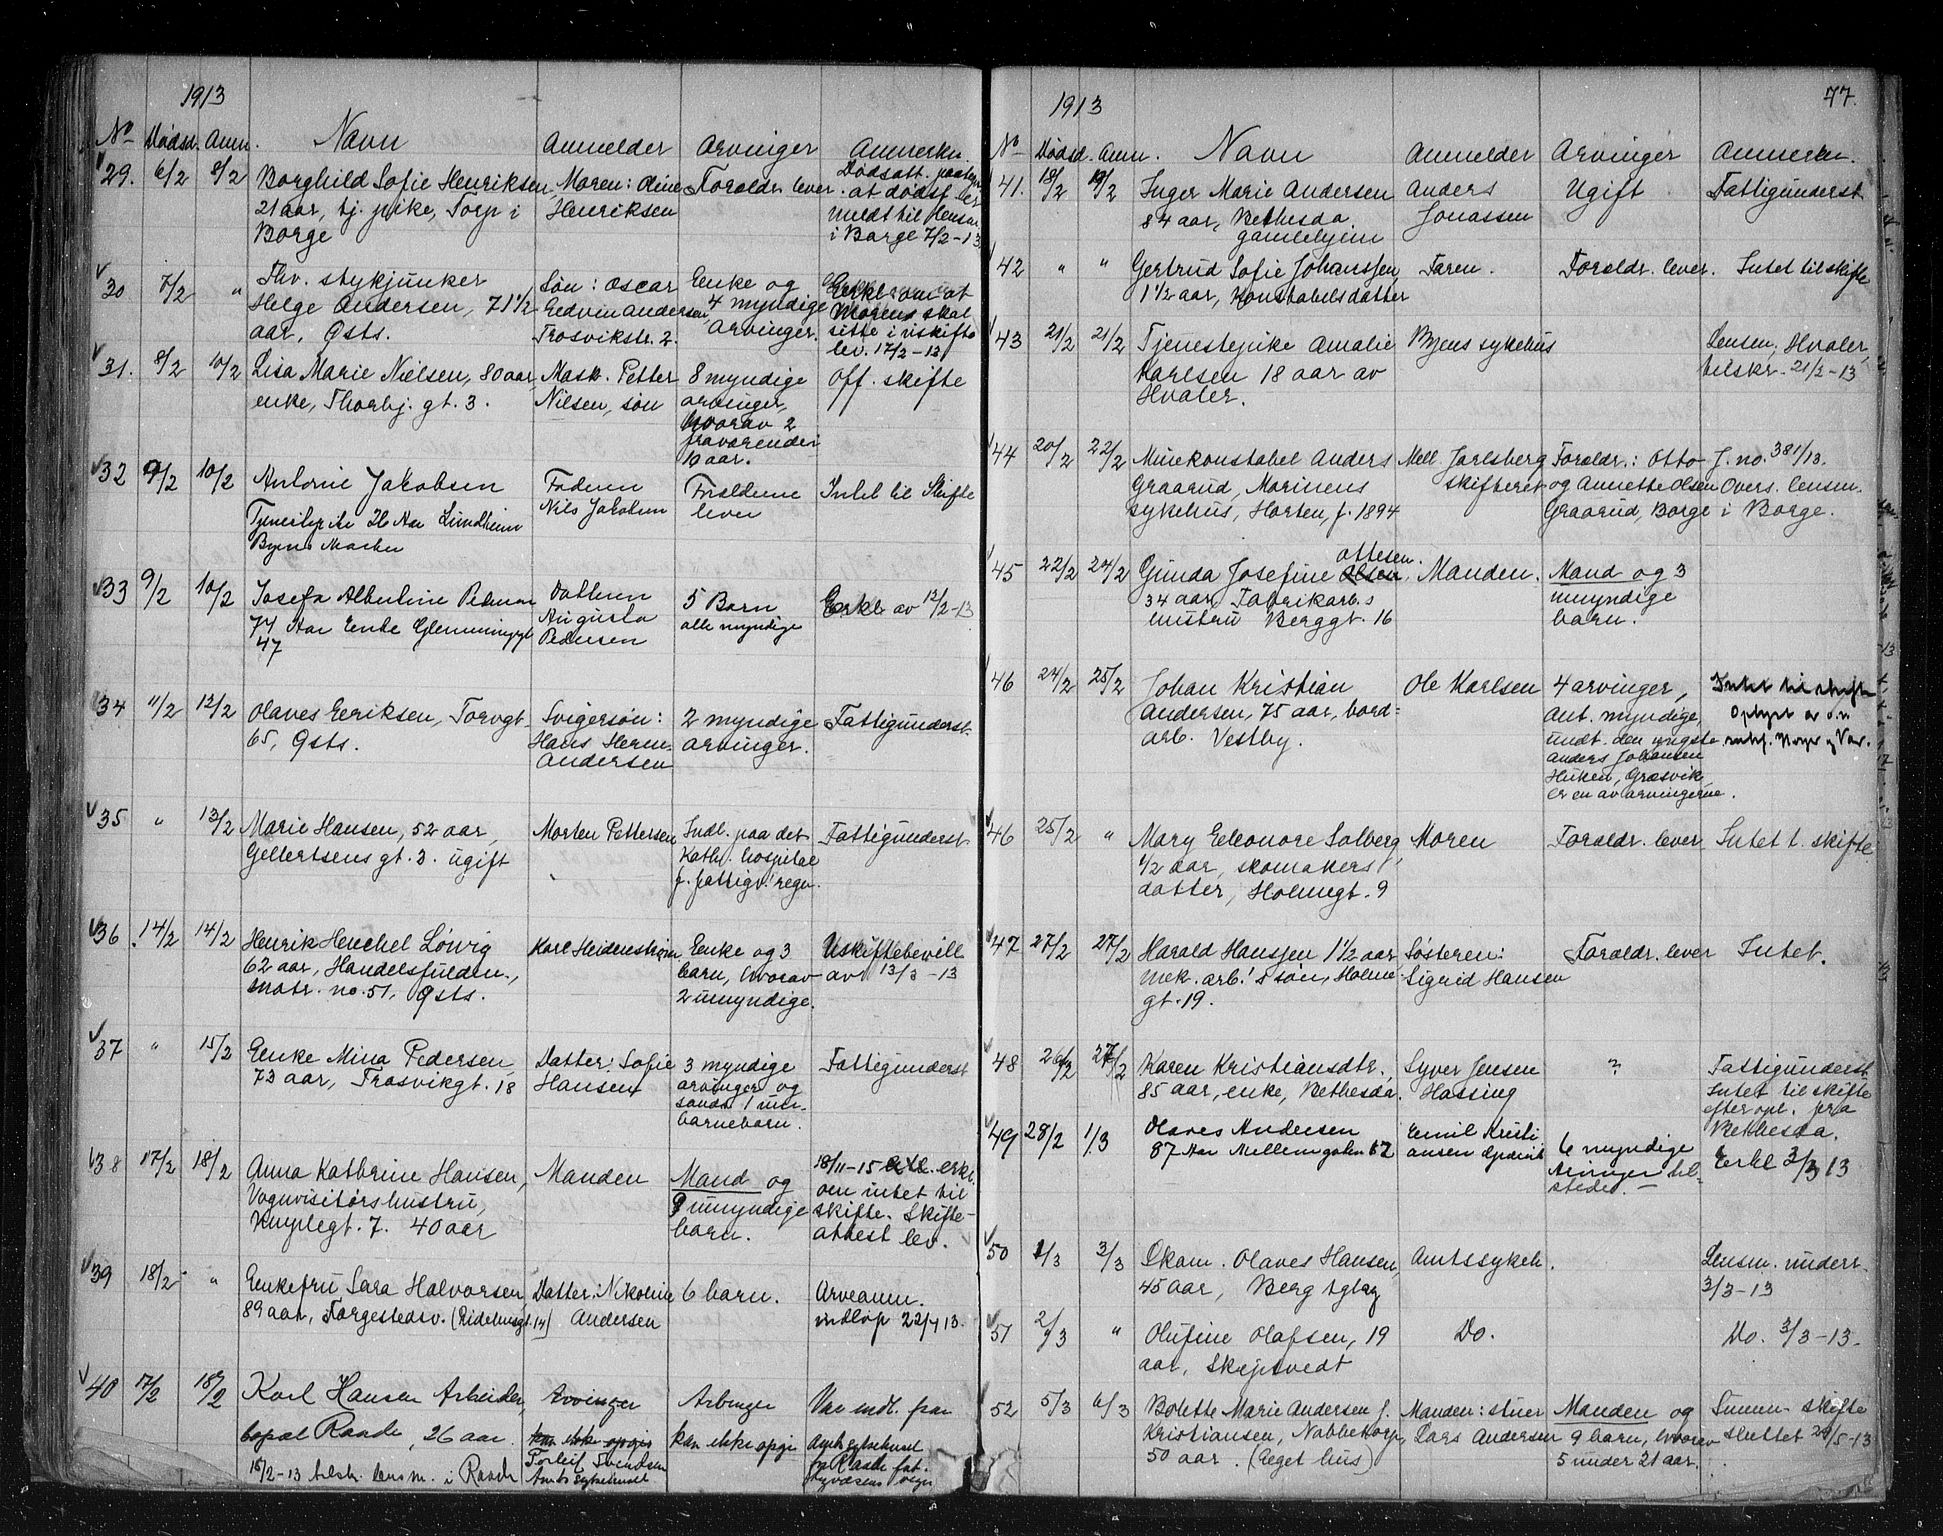 1913
No Dødsd. Anm. Navn Anmelder Arvinger Anmerkn.
29. 6/2 8/2 Borghild Sofie Henriksen Moren: Oline Foreldr. lever. Dødsatt.
21 aar, tj. pike, Torp i Henriksen at dødsf. er
Borge meldt til lensm.
i Borge 7/2-13
30 7/2 " Fhv. stykjunker Søn: Oscar Enke og
Helge Andersen, 71 1/2 Edvin Andersen 4 myndige Erkl. om at
aar, Østs. Trosvikstr. 2. arvinger. Moren skal
sitte i uskifte
lev. 17/2-13
31. 8/2 10/2 Lisa Marie Nielsen, 80 aar Mask. Petter 8 myndige Off. skifte
enke, Thorbj. gt. 3. Nilsen, søn arvinger,
hvorav 2
fraværende i
10 aar.
32 9/2 10/2 Antonie Jakobsen Faderen Forældrene Intet til Skifte
Tjenestepike 26 Aar Lundheim Nils Jakobsen lever
Byens Marker
33 9/2 10/2 Josefa Albertine Pedersen Datteren 5 Barn Erkl. av 12/2-13
74 Aar Enke Glemmingegt Augusta alle myndige
47 Pedersen
34 11/2 12/2 Olaves Eriksen, Torvgt. Svigersøn: 2 myndige Fattigunderst.
65, Østs. Hans Herm. arvinger.
Andersen
35 " 13/2 Marie Hansen, 52 aar, Morten Pettersen Indl. paa det Fattigunderst.
Gellertsens gt. 3. ugift Kath. hospital
f. fattigv.' regn.
36 14/2 14/2 Henrik Henchel Löwig Karl Heidenstrøm Enke og 3 Uskiftebevill
62 aar, Handelsfuldm., barn, hvorav av 13/3-13
matr. no. 51, Østs. 2 umyndige.
37 " 15/2 Enke Mina Pedersen, Datter: Sofie 3 myndige Fattigunderst.
73 aar, Trosvikgt. 18 Hansen arvinger og
samt 1 um.
barnebarn.
38 17/2 18/2 Anna Kathrine Hansen, Manden Mand og 18/11-15 erkl.
Vognvisitørshustru, 9 umyndige om intet til
Kniplegt. 7. 40 aar barn. skifte. Skifte-
attest lev.
39 18/2 " Enkefru Sara Halvorsen, Datter: Nikoline 6 barn. Arveanm.
89 aar, Færgestedsv. (Ridehusgt. 14) Andersen indløp 22/4 13.
40 17/2 18/2 Karl Hansen Arbeider, Arvinger Arvinger Var indl. fra
bopæl Raade, 26 aar. kan ikke opgis kan ikke opgi Amtssykehuset
18/2-13 tilskr. lensm. i Raade Torleif Svendsen
Amtssykehuset

1913 77.
No Dødsd. Anm. Navn Anmelder Arvinger Anmerkn.
41. 18/2 19/2 Inger Marie Andersen Anders Ugift Fattigunderst
84 aar, Bethesda Jonassen
gamlehjem
42 " " Gertrud Sofie Johanssen Faren. Foreldr. lever. Intet til skifte
1 1/2 aar, Konstabelsdatter
43 21/2 21/2 Tjenestepike Amalie Byens sykehus Lensm, Hvaler,
Karlsen 18 aar av tilskr. 21/2-13
Hvaler.
44 20/2 22/2 Minekonstabel Anders Mell. Jarlsberg Foreldr.: Otto J. no. 381/13.
Graarud, Marinens skifteret og Annette Olsen Overs. lensm.
sykehus, Horten, f. 1894 Graarud, Borge i Borge.
45 22/2 24/2 Gunda Josefine Olsen Ottesen. Manden. Mand og 3
34 aar, Fabrikarb.s umyndige
hustru Berggt. 16 barn.
46 24/2 25/2 Johan Kristian Ole Karlsen 4 arvinger, Intet til skifte
Andersen, 75 aar, bord= ant. myndige, Oplyst av
arb. Vestby. undt. den yngste
Anders Johansen
Huken, Græsvik
er en av arvingerne.
46 25/2 " Mary Eleonore Solberg, Moren Foreldr. lever Intet t. skifte
1/2 aar, skomakers
datter, Holmegt. 9
47 27/2 27/2 Harald Hanssen 1 1/2 aar Søsteren: Foreldr. lever Intet.
mek. arb.'s søn, Holme- Sigrid Hansen
gt. 19.
48 26/2 27/2 Karen Kristiansdtr., Syver Jensen ? Fattigunderst.
85 aar, enke, Bethesda. Hassing Intet til skifte
efter opl. fra
Bethesda.
49 28/2 1/3 Olaves Andersen Emil Kristi 6 myndige Erkl 3/3 13
87 Aar Mellemgaten 62 ansen Arvinger til-
stede. —
50 1/3 3/3 Økom. Olaves Hansen, Amtssykeh. Lensm. underr.
45 aar, Berg 3/3-13
51 2/3 " Olufine Olafsen, 19 Do. Do. 3/3-13.
aar, Skjeptvedt
52 5/3 6/3 Bolette Marie Andersen f. Manden: stuer Manden og Summ. skifte
Kristiansen, Nabbetorp, Lars Andersen 9 barn, hvorav sluttet 29/5-13
50 aar. (Eget hus) 5 under 21 aar.